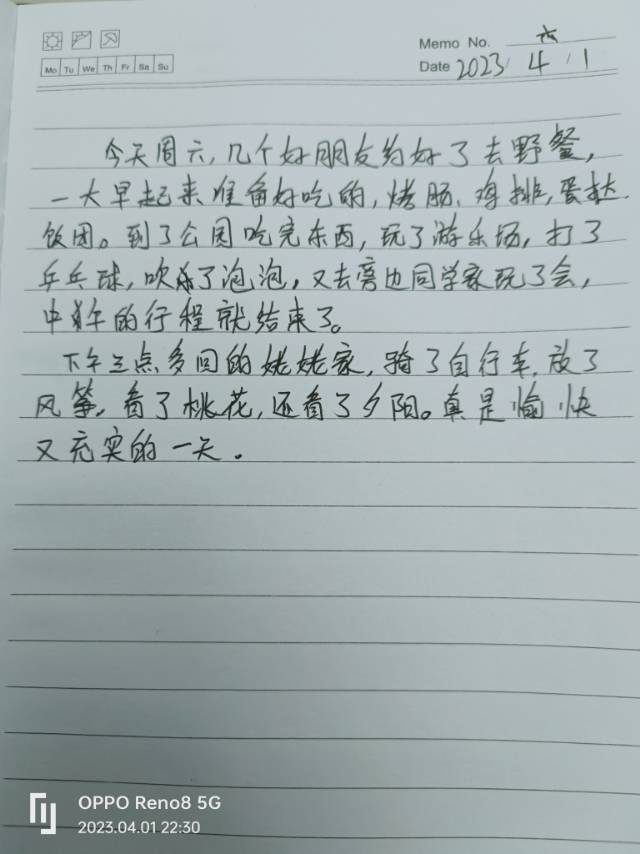 Memo No. 六
Mo Tu We Th Fr Sa Su
Date 2023 / 4 / 1
今天周六,几个好朋友约好了去野餐,
一大早起来准备好吃的,烤肠、鸡排,蛋挞
饭团。到了公园吃完东西,玩了游乐场,打了
乒乓球,吹了泡泡,又去旁边同学家玩了会,
中午的行程就结束了。
下午三点多回的姥姥家,骑了自行车,放了
风筝,看了桃花,还看了夕阳。真是愉快
又充实的一天。
OPPO Reno8 5G
2023.04.01 22:30